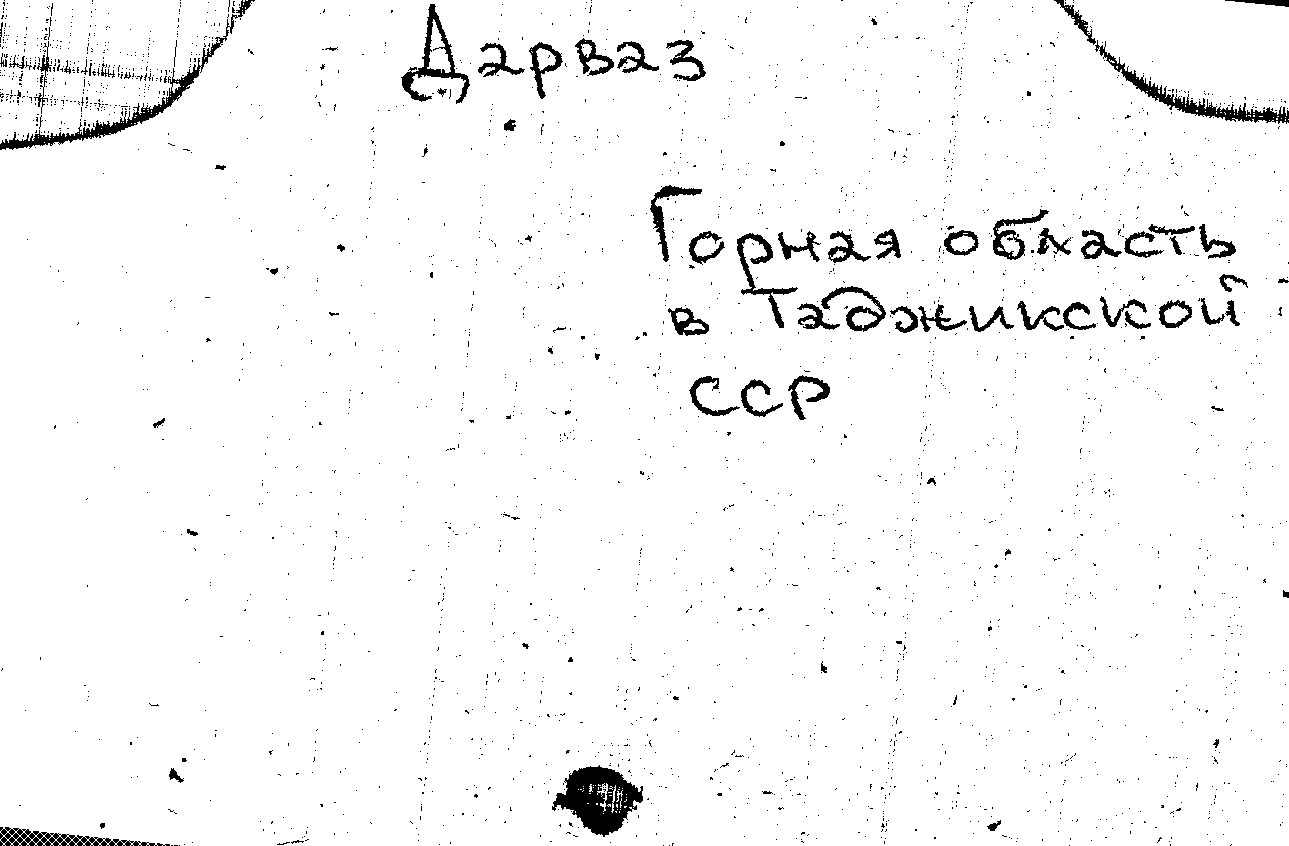 Дарваз
Горная область
в Таджикской
ССР